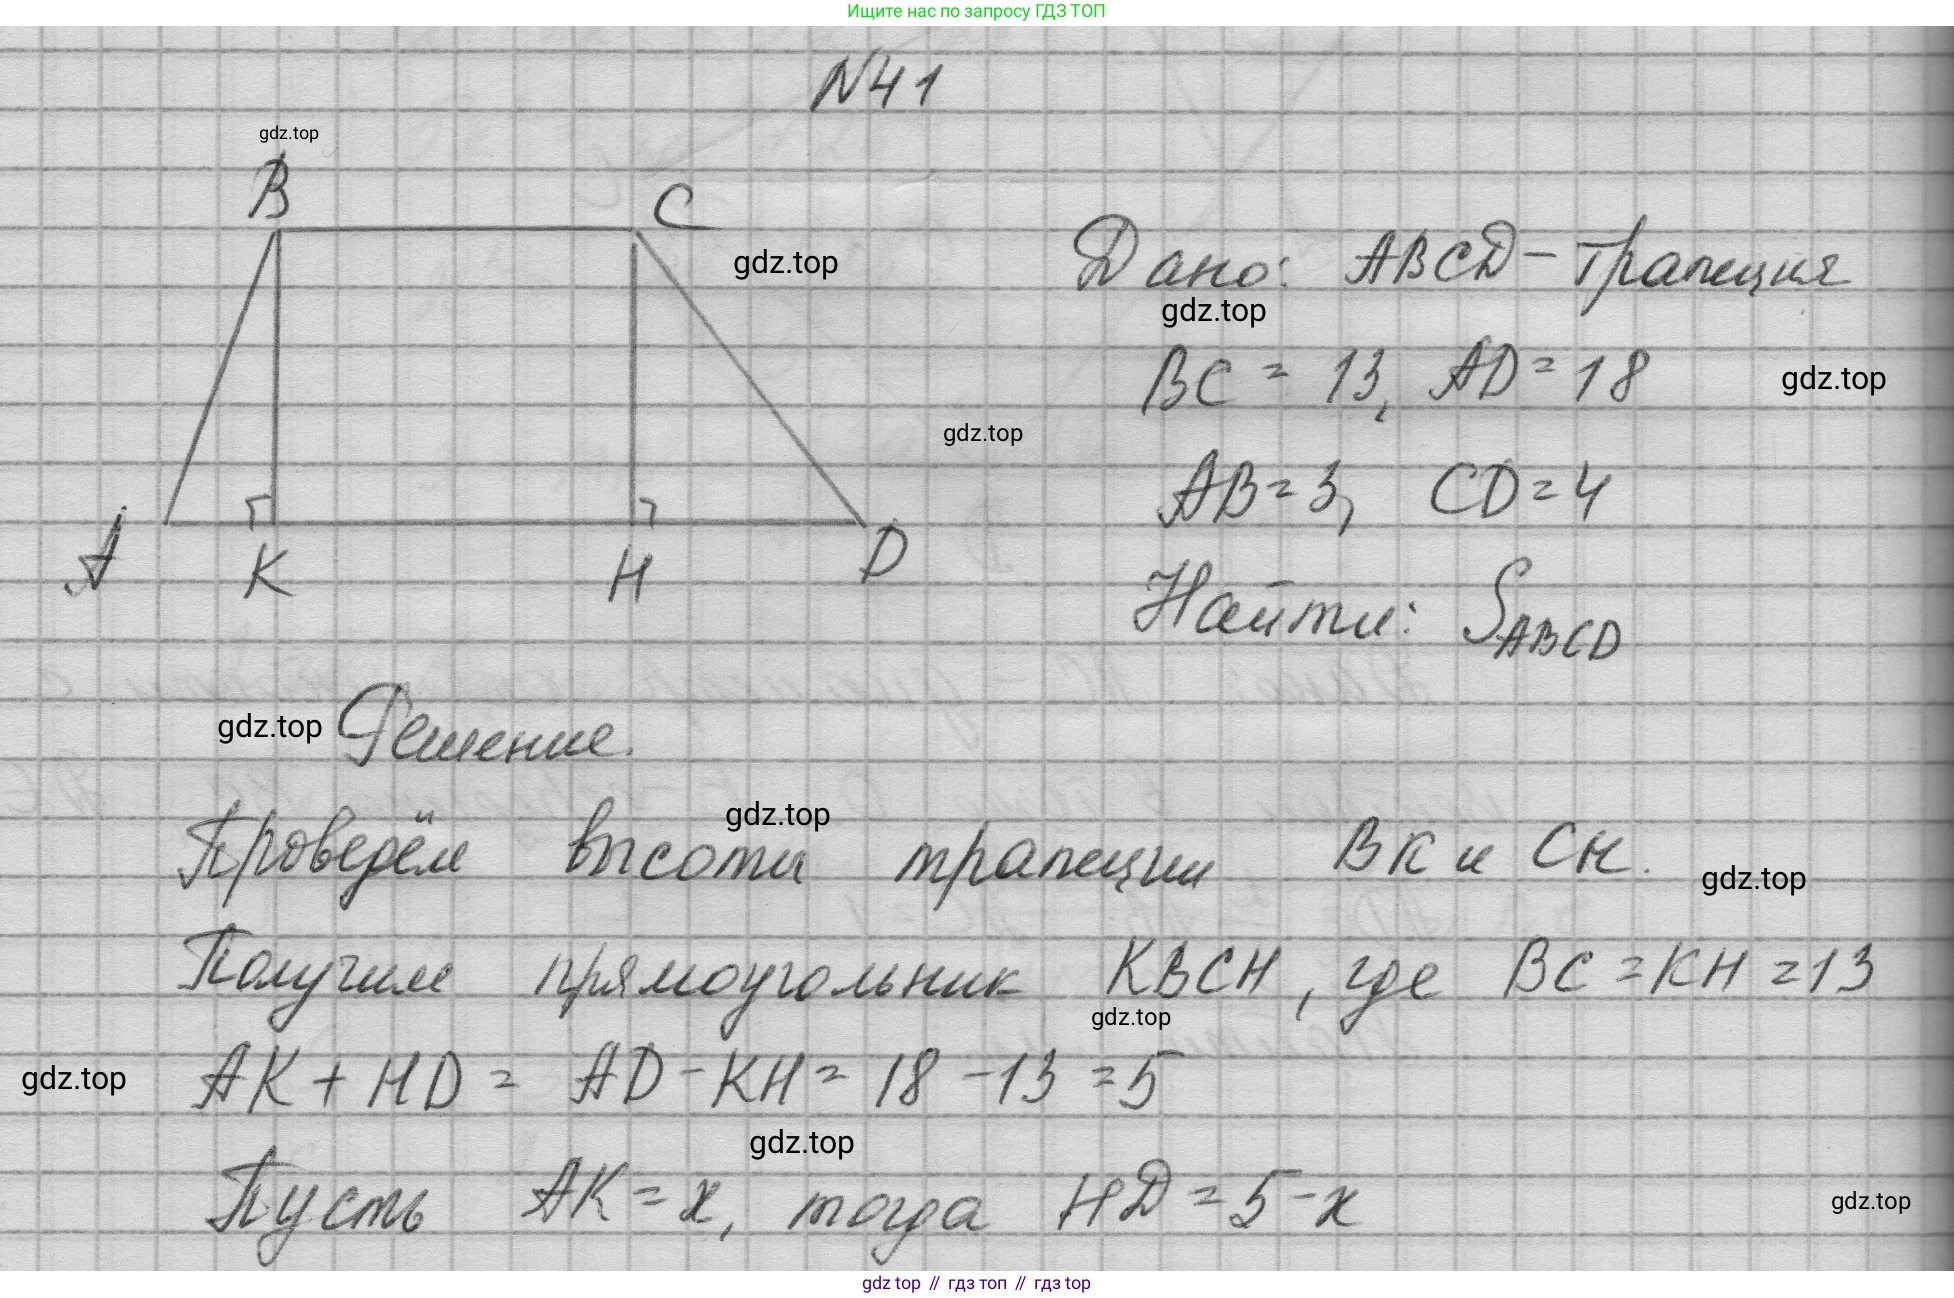 Ищите нас по запросу ГДЗ ТОП
№41
gdz.top
B
C
gdz.top
Дано: ABCD - трапеция
gdz.top
BC = 13, AD = 18
gdz.top
gdz.top
AB = 3, CD = 4
A
K
H
D
Найти: S_ABCD
gdz.top
Решение.
gdz.top
Проведём высоты трапеции BK и CH.
gdz.top
Получим прямоугольник KBCH, где BC = KH = 13
gdz.top
gdz.top
AK + HD = AD - KH = 18 - 13 = 5
gdz.top
Пусть AK = x, тогда HD = 5 - x
gdz.top
gdz top // гдз топ // гдз top